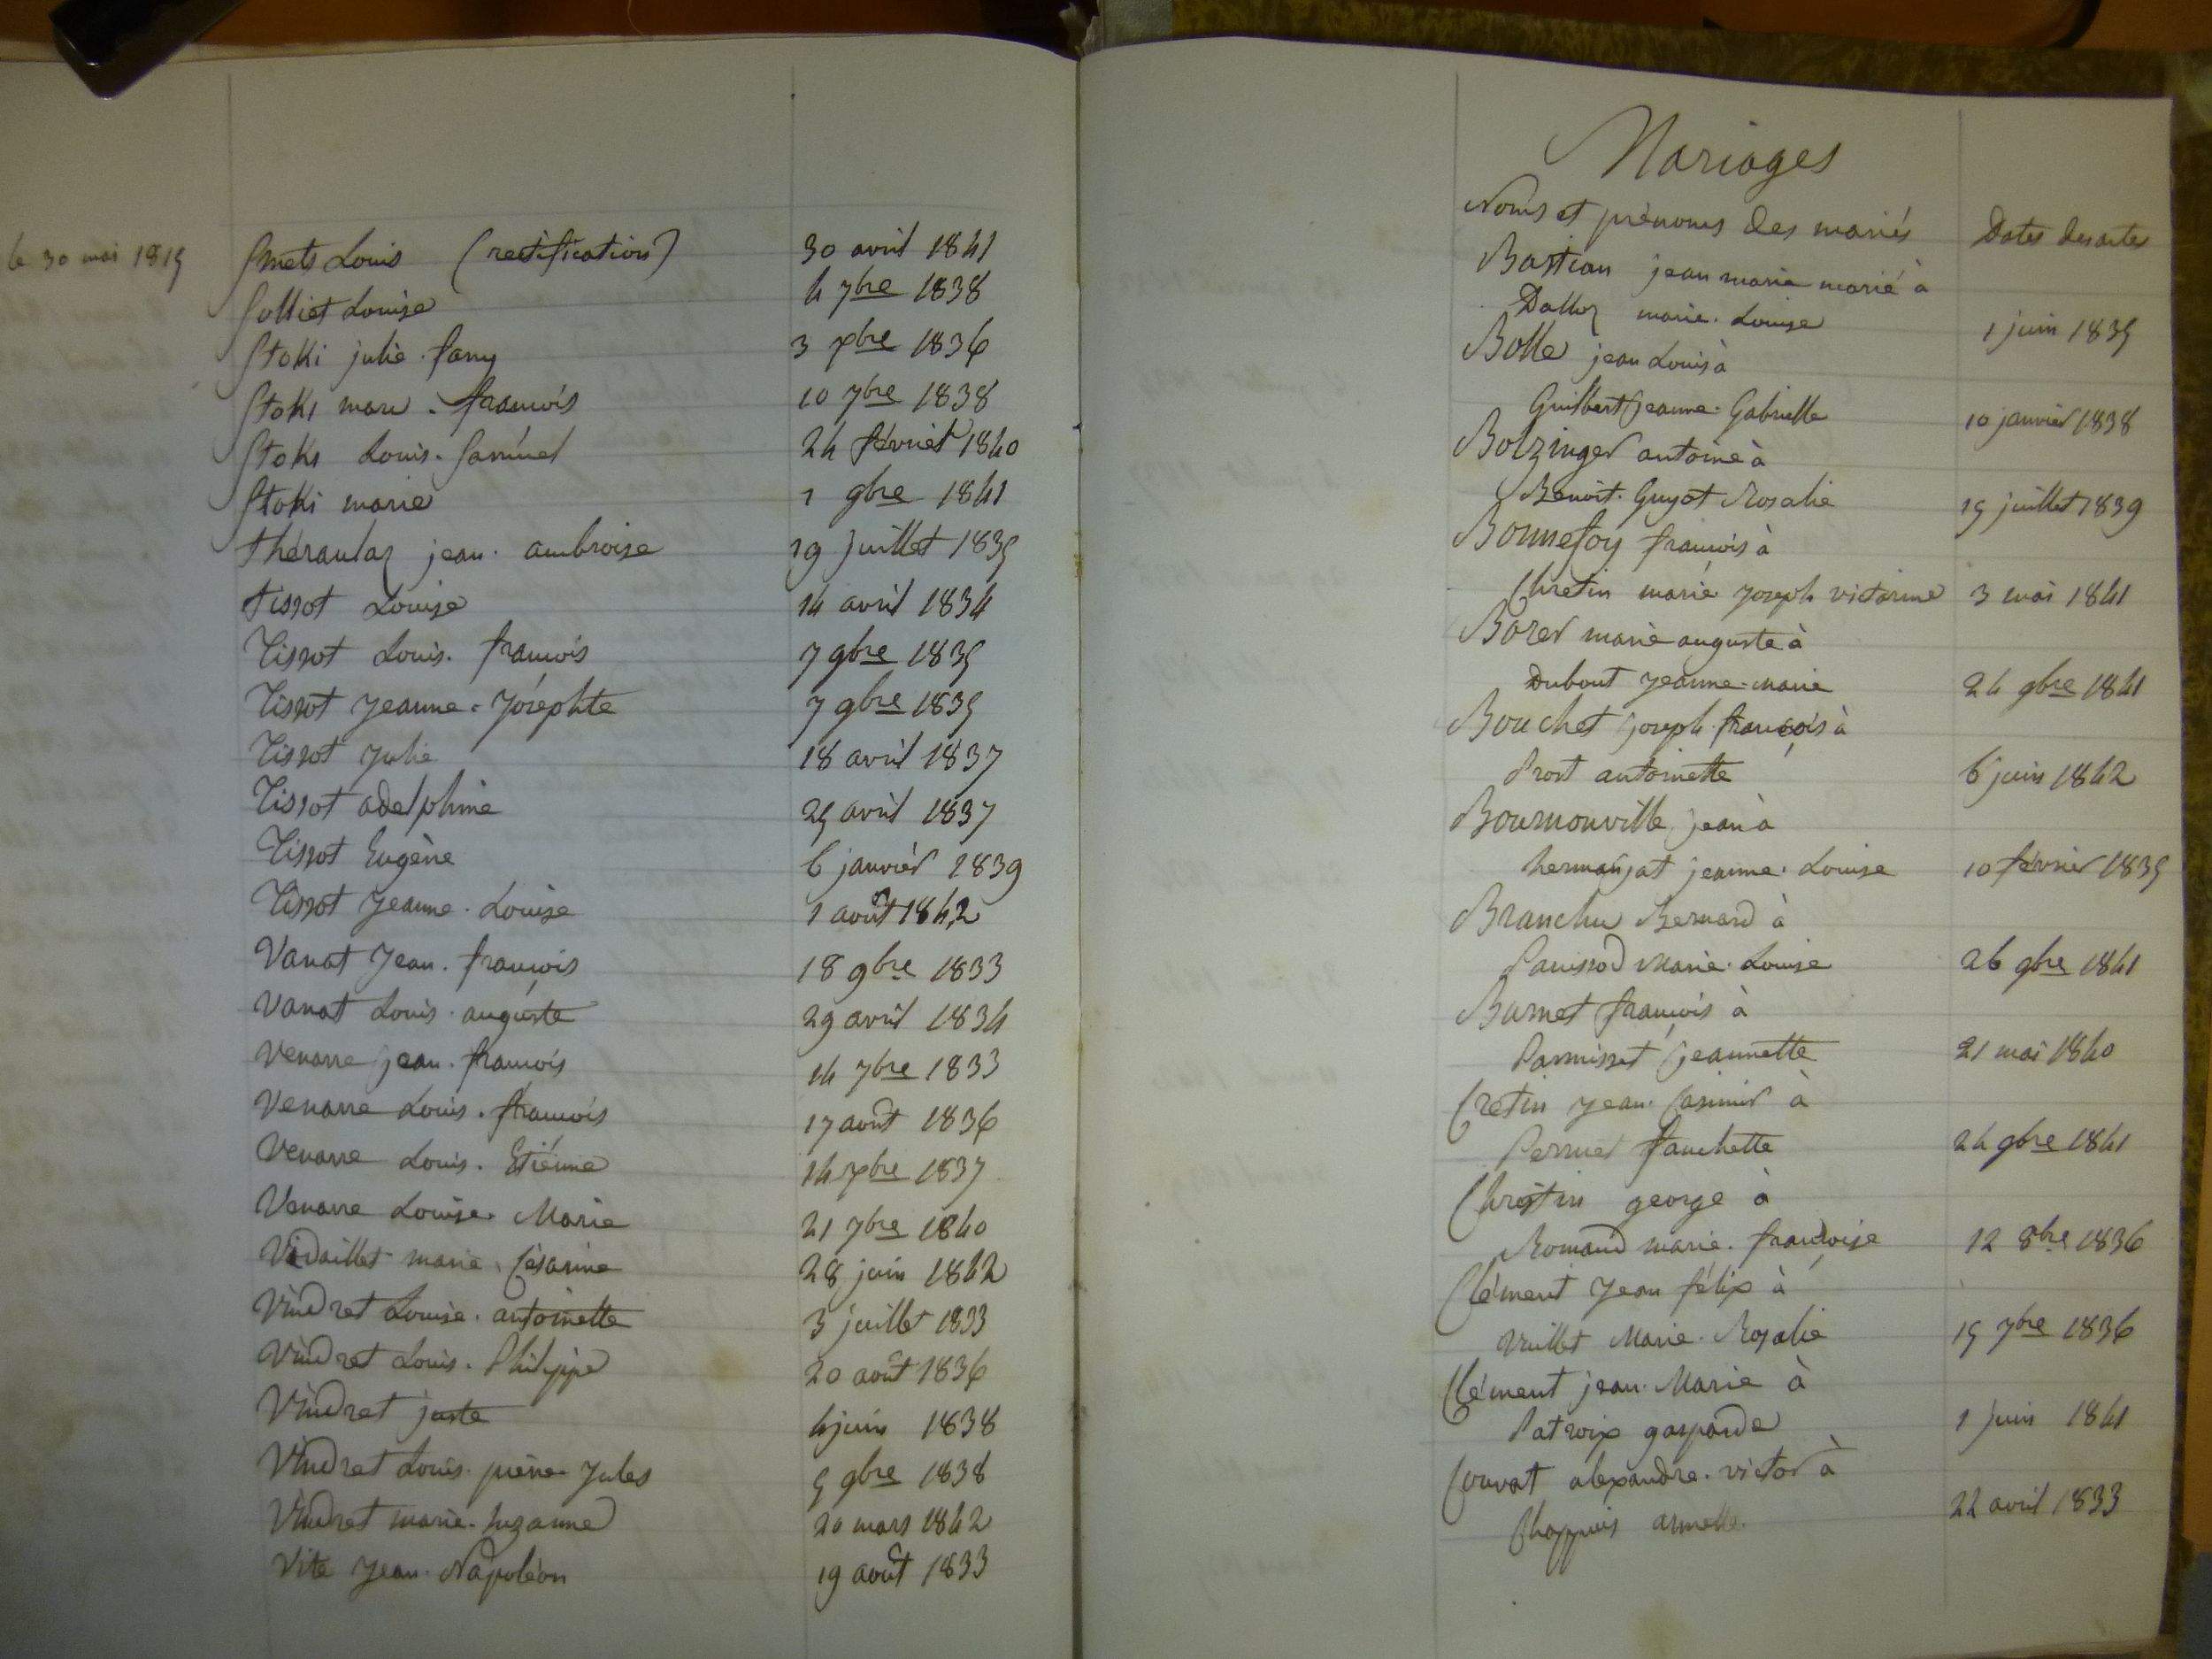 le 30 mai 1815 Smets Louis (rectification) 30 avril 1841
Solliet Louise 4 7bre 1838
Stoki julie fany 3 xbre 1836
Stoki marc françois 10 7bre 1838
Stoki Louis Samuel 24 février 1840
Stoki marie 1 9bre 1841
théraulaz jean ambroise 19 juillet 1835
tissot Louise 14 avril 1834
Tissot Louis françois 7 9bre 1835
Tissot Jeanne Josephte 7 9bre 1835
Tissot Julie 18 avril 1837
Tissot adelphine 25 avril 1837
Tissot Eugène 6 janvier 1839
Tissot Jeanne Louise 1 août 1842
Vanat Jean françois 18 9bre 1833
Vanat Louis auguste 29 avril 1834
Venarre jean françois 14 7bre 1833
Venarre Louis françois 17 août 1836
Venarre Louis Etiénne 14 xbre 1837
Venarre Louise Marie 21 7bre 1840
Vidaillet marie Césarine 28 juin 1842
Vindret Louise antoinette 3 juillet 1833
Vindret Louis Philippe 20 août 1836
Vindret juste 4 juin 1838
Vindret Louis pierre Jules 5 9bre 1838
Vindret marie Suzanne 20 mars 1842
Vite Jean Napoléon 19 août 1833
Mariages
Noms et prénoms des mariés Dates des actes
Bastian jean marie marié à
Dalloz marie Louise 1 juin 1835
Bolle jean Louis à
Guilbert jeanne Gabrielle 10 janvier 1838
Bolzinger antoine à
Benoit Guyot Rosalie 15 juillet 1839
Bonnefoy françois à
Chretin marie Joseph victorine 3 mai 1841
Borer marie auguste à
Dubout Jeanne marie 24 9bre 1841
Bouchet joseph françois à
Prost antoinette 6 juin 1842
Bournonville jean à
hermanjat jeanne Louise 10 février 1835
Branchu Bernard à
Panissod Marie Louise 26 9bre 1841
Burnet françois à
Panisset jeannette 21 mai 1840
Cretin Jean Casimir à
Perrier fanchette 24 9bre 1841
Christin george à
Romand marie françoise 12 8bre 1836
Clément Jean félix à
Vuillet Marie Rosalie 15 7bre 1836
Clément jean Marie à
Patroix gasparde 1 juin 1841
Convat alexandre victor à
Chappuis armelle 22 avril 1833